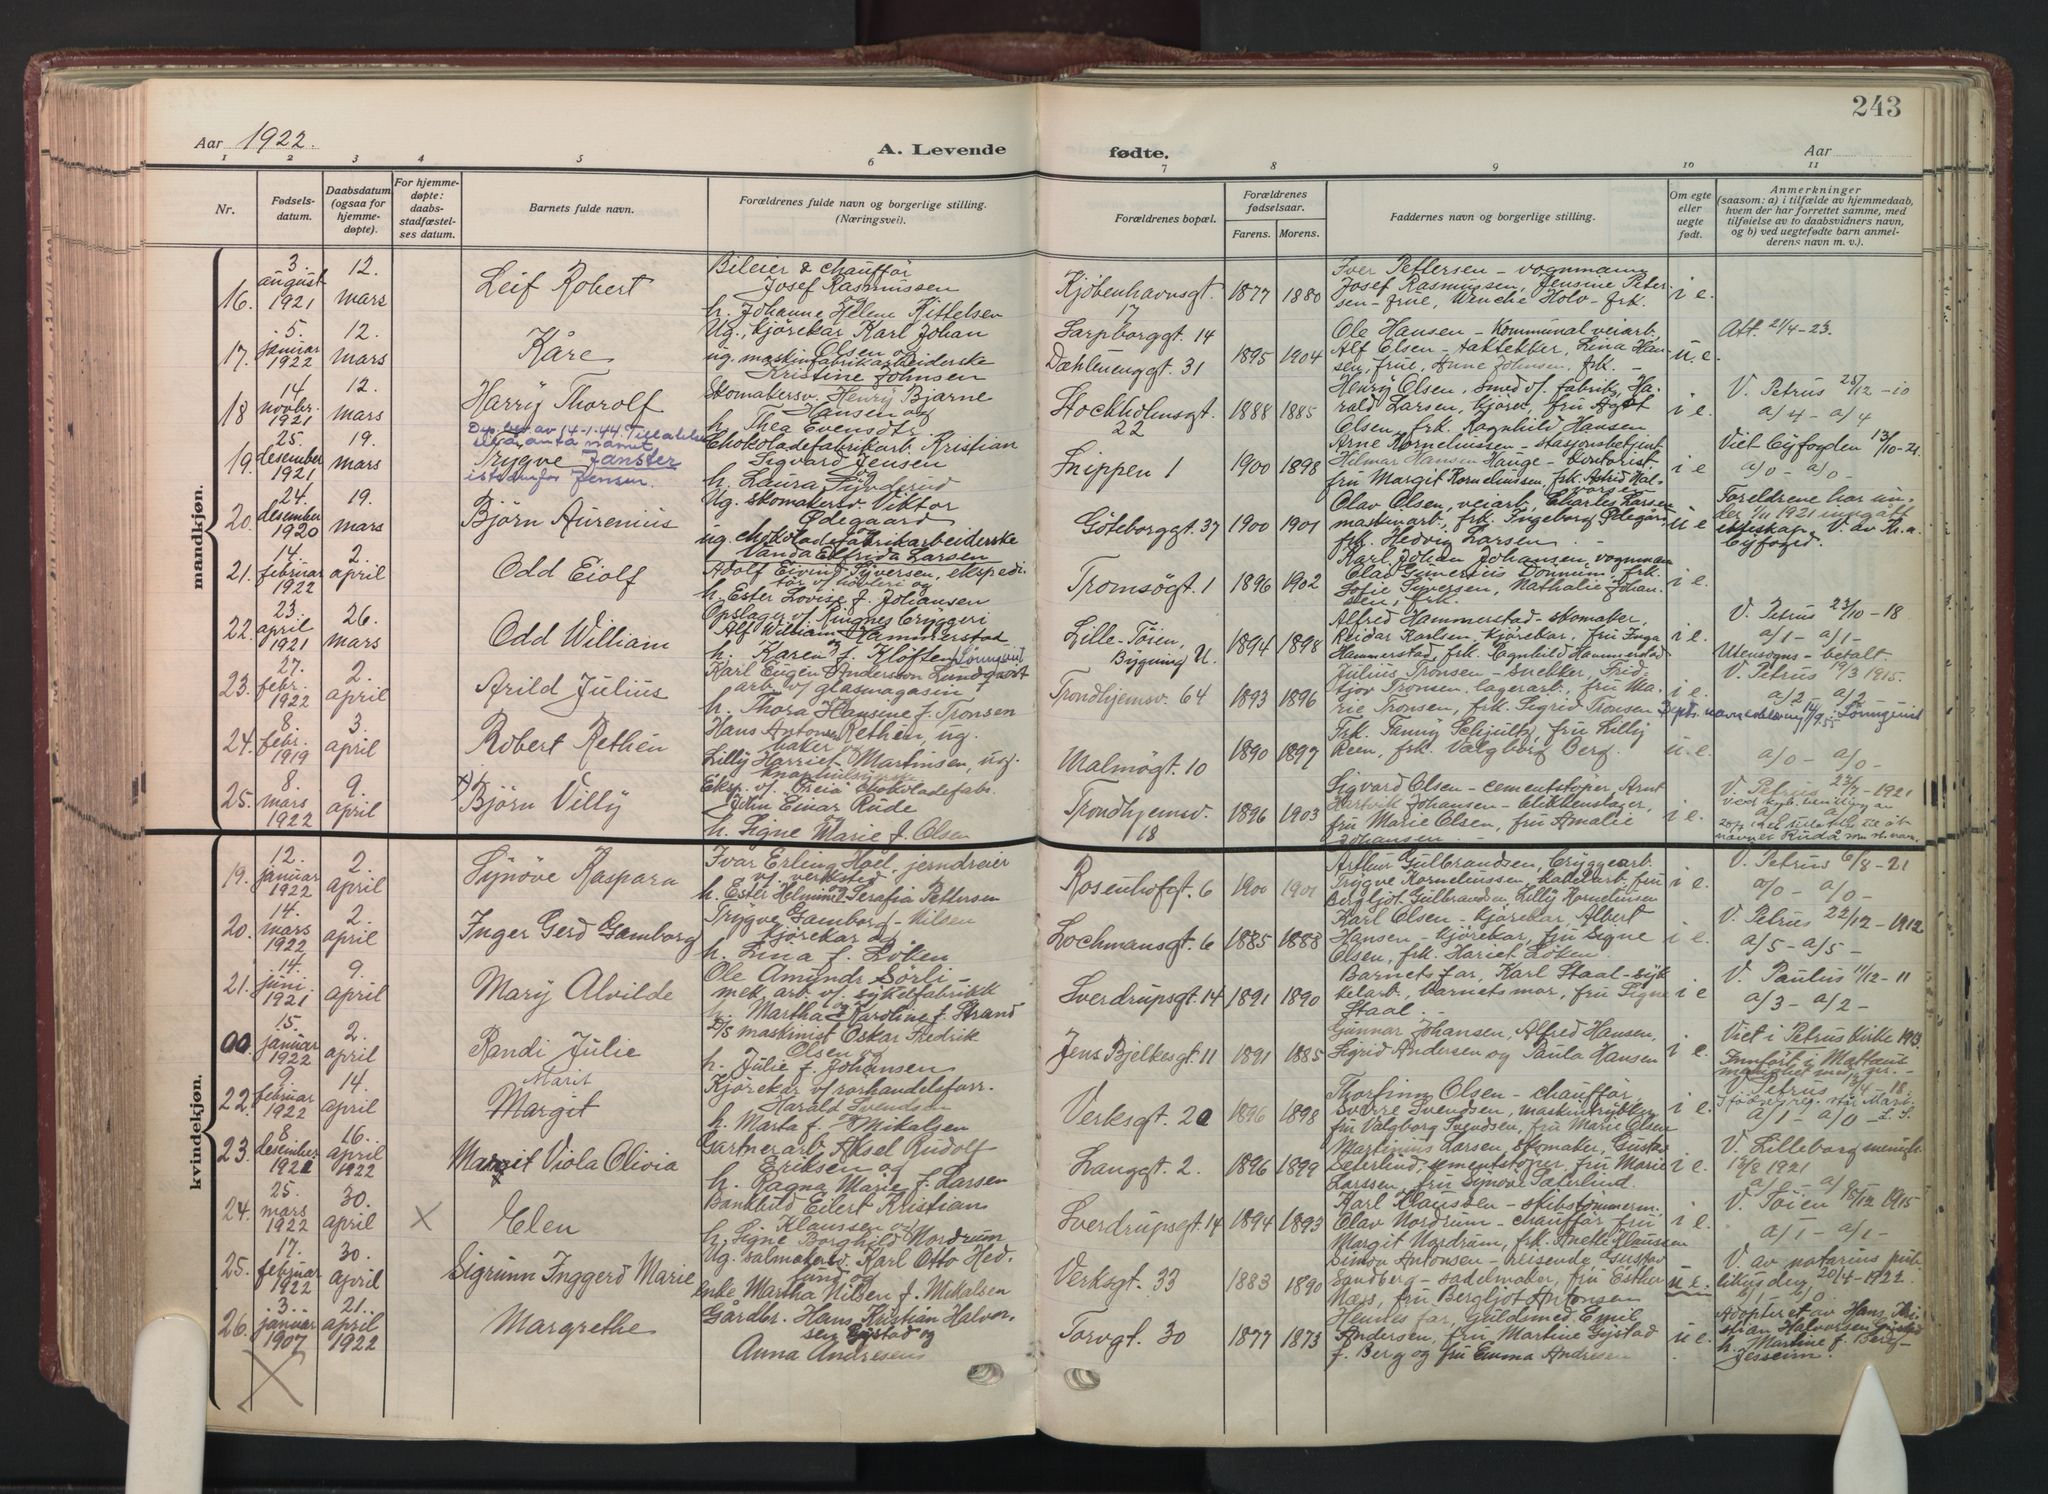 243
Aar 1922.
A. Levende fødte.
Aar
1 2 3 4 5 6 7 8 9 10 11
Nr.
Fødsels-
datum.
Daabsdatum
(ogsaa for
hjemme-
døpte).
For hjemme-
døpte:
daabs-
stadfæstel-
ses datum.
Barnets fulde navn.
Forældrenes fulde navn og borgerlige stilling.
(Næringsvei).
Forældrenes bopæl.
Forældrenes
fødselsaar.
Farens. Morens.
Faddernes navn og borgerlige stilling.
Om egte
eller
uegte
født.
Anmerkninger
(saasom: a) i tilfælde av hjemmedaab,
hvem der har forrettet samme, med
tilføielse av to daabsvidners navn,
og b) ved uegtefødte barn anmel-
derens navn m. v.).
mandkjøn.
16.
3.
august
1921
12.
mars
Leif Robert
Bileier & chauffør
Josef Rasmussen
og
h. Johanne Helene Kittelsen
Kjøbenhavnsgt.
17
1877 1880
Iver Pettersen - vognmann
Josef Rasmussen, Jensine Peter-
sen - frue, Wenche Holv - frk.
i e.
17.
5.
januar
1922
12.
mars
Kåre
Ug. kjørekar Karl Johan
Olsen og
ug. maskinfabrikarbeiderske
Kristine Johnsen
Sarpborggt. 14
Dæhlenenggt. 31
1895 1904
Ole Hansen - Kommunal veiarb.
Alf Olsen - taktekker, Lina Han-
sen, frue, Anne Johnsen, frk.
u e.
Att. 21/4-23.
18
14
novbr.
1921
12.
mars
Harry Thorolf
Skomakersv. Henry Bjarne
Hansen og
h. Thea Evensdtr.
Stockholmsgt.
22
1888 1885
Henry Olsen, smed v/ fabrik, Ha-
rald Larsen, kjørek, fru Agot
Olsen, frk. Ragnhild Hansen
i e.
V. Petrus 25/12-10
a/4 - a/4
19.
25.
desember
1921
19.
mars
Dep. bev. av 14-1-44. Tillatelse
til å anta navnet
Trygve Janster
istedenfor Jensen.
Chokoladefabrikarb. Kristian
Sigvard Jensen
og
h. Laura Synderud
Snippen 1
1900 1898
Arne Korneliussen - stasjonsbetjent
Hilmar Hansen Hauge - kontorist
fru Margit Kornelinssen, frk. Astrid Hal-
vorsen
i e
Viet Byfogden 13/10-21
a/0 - a/0 -
20.
24.
desember
1920
19.
mars
Bjørn Aurenius
Ug. skomakersv. Viktor
Ødegaard
og
ug. chokoladefabrikarbeiderske
Vanda Elfrida Larsen
Göteborggt. 37
1900 1901
Olav Olsen, veiarb, Charles Larsen
maskinarb., frk. Ingeborg Ødegård
frk. Hedvig Larsen
u e
Foreldrene har un-
der 1/11 1921 inngått
ekteskap. V. av Kr.a
Byfogd.
21.
14.
februar
1922
2.
april
Odd Eiolf
Adolf Eivind Syversen, ekspedi-
tør v/ høvleri og
h. Ester Lovise f. Johansen
Tromsøgt. 1
1896 1902
Karl Johan Johansen, vognman
Olav Gunerius Dønnum, frk.
Sofie Syversen, Nathalie Johan-
sen, frk.
i e.
22.
23.
april
1921
26.
mars
Odd William
Opslager v/ Ringnes bryggeri
Alf William Hammerstad
og
h. Karen f. Kløften
Lille-Tøien,
Bygning U.
1894 1898
Alfred Hammerstad - skomaker,
Reidar Karlsen, kjørekar, fru Inga
Hammerstad, frk. Ragnhild Hammerstad
i e.
V. Petrus 23/10-18
a/1 - a/1 -
Utensogns - betalt
23.
27.
febr.
1922
2.
april
Arild Julius
(Lönnqvist)
Karl Eugen Anderson Lundqvist
arb v/ glasmagasin
h. Thora Hansine f. Tronsen
Trondhjemsv. 64
1893 1896
Julius Tronsen - snekker, Frid-
tjov Tronsen, lagerarb., fru Ma-
rie Tronsen, frk. Sigrid Tronsen
i e.
V. Petrus 19/3 1915.
a/2 - a/2 -
Dept. navnebevilling 14/9 55 Lönnqvist
24.
8.
febr.
1919
3.
april
Robert Rethén
Hans Anton Rethen, ug.
maker og
Lilly Harriet Martinsen, ug.
knaphulsyerske
Malmøgt. 10
1890 1897
Frk. Fanny Schjultz, fru Lilly
Reen, frk. Valgborg Berg.
u. e.
a/0 - a/0 -
25.
8.
mars
1922
9.
april
Bjørn Villy
Eksp. v/ "Freia" chokoladefab.
John Einar Rude
og
h. Signe Marie f. Olsen
Trondhjemsv.
18
1896 1903
Sigvard Olsen - cementstøper, Arnt
Hartvik Johansen - blikkenslager,
fru Marie Olsen, fru Amalie
Johansen
i e.
V. Petrus 22/7-1921
kvindekjøn.
19.
12.
januar
1922
2.
april
Synøve Kaspara
Ivar Erling Hoel, jerndreier
v/ verksted
og
h. Ester Helmine Serafia Pettersen
Rosenhofgt. 6
1900 1901
Arthur Gulbrandsen, bryggearb.
Trygve Kornelinssen, kabelarb. fru
Bergljot Gulbrandsen, Lilly Kornelinsen
i e.
V. Petrus 6/8-21
a/0 - a/0 -
20.
14.
mars
1922
2.
april
Inger Gerd Gamborg
Trygve Gamborg - Nilsen
kjørekar og
h. Lina f. Løken
Lochmansgt. 6
1885 1888
Karl Olsen - kjørekar, Albert
Hansen - kjørekar, fru Signe
Olsen, frk. Hariet Løken.
i e.
V. Petrus 22/12-1912
a/5 - a/5 -
21.
14.
juni
1921
9.
april
Mary Alvilde
Ole Amundr Sörli -
mek. arb. v/ sykelfabrikk
og
h. Martha Karoline f. Strand
Sverdrupsgt. 14
1891 1890
Barnets far, Karl Staal - syk-
kelarb., barnets mor, fru Signe
Staal.
i e
V. Paulus 11/12-11
a/3 - a/2 -
00.
15.
januar
1922
2.
april
Randi Julie
D/S maskinist Oskar Fredrik
Olsen og
h. Julie f. Johansen
Jens Bjelkesgt 11
1891 1885
Gunnar Johansen, Alfred Hansen,
Sigrid Andersen og Paula Hansen
i e.
Viet i Petrus kirke 1913.
Innført i Matteus
menighet med nr. -
22.
9.
februar
1922
14.
april
Marit
Margit
Kjørekar v/ rørhandelsforr.
Harald Svendsen
og
h. Marta f. Mikalsen
Verksgt. 20
1896 1898
Thorfinn Olsen - chauffør,
Sverre Svendsen, maskintrykker,
fru Valgborg Svendsen, fru Marie Olsen
i e.
V. Petrus 13/4-18
I fødselsreg. står Marit.
a/1 - a/0 - L.S.
23.
8
desember
1921
16.
april
1922
Margit Viola Olivia
Gartnerarb. Aksel Rudolf
Eriksen og
h. Ragna Marie f. Larsen
Langgt. 2.
1896 1899
Martinius Larsen skomaker, Gustav
Seterlind, sementstøper, fru Marie
Larssen, fru Synøve Sæterlind.
i e.
V. Lilleborg menigh.
13/8 1921
a/0 - a/0 -
24.
25.
mars
1922
30.
april
X
Elen
Bankbud Eilert Kristian
Klaussen og
h. Signe Borghild Nordrum
Sverdrupsgt. 14
1894 1893
Karl Klaussen - skibstømmerm.
Olav Nordrum - chauffør, fru
Margit Nordrum, frk. Anette Klaussen
i e.
V. Tøien 18/12 1915
a/1 - a/1 -
25.
17.
februar
1922
30.
april
Sigrunn Inggerd Marie
Ug. salmakersv. Karl Otto Hed-
lund og
enke Martha Nilsen f. Mikalsen
Verksgt. 33
1883 1890
Simon Antonsen - reisende, Gustav
Sandberg - sadelmaker, fru Esther
Næss, fru Bergljot Antonsen
u e.
V. av notarius pub-
likus den 20/4-1922.
b/0 - b/0
26.
3.
januar
1907
21.
april
1922
Margrethe
Gårdbr. Hans Kristian Halvor-
sen Gystad og
Anna Andresen
Torvgt. 30
1877 1873
Hennes far, Guldsmed Emil
Andersen, fru Martine Gystad
f. Berg og fru Emma Andresen
u e.
Adoptert av Hans Kri-
stian Halvorsen Gystad
h. Martine f. Berg -
Jessheim.
X